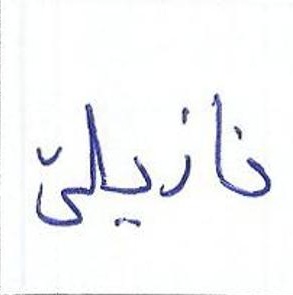 نازيلىّ